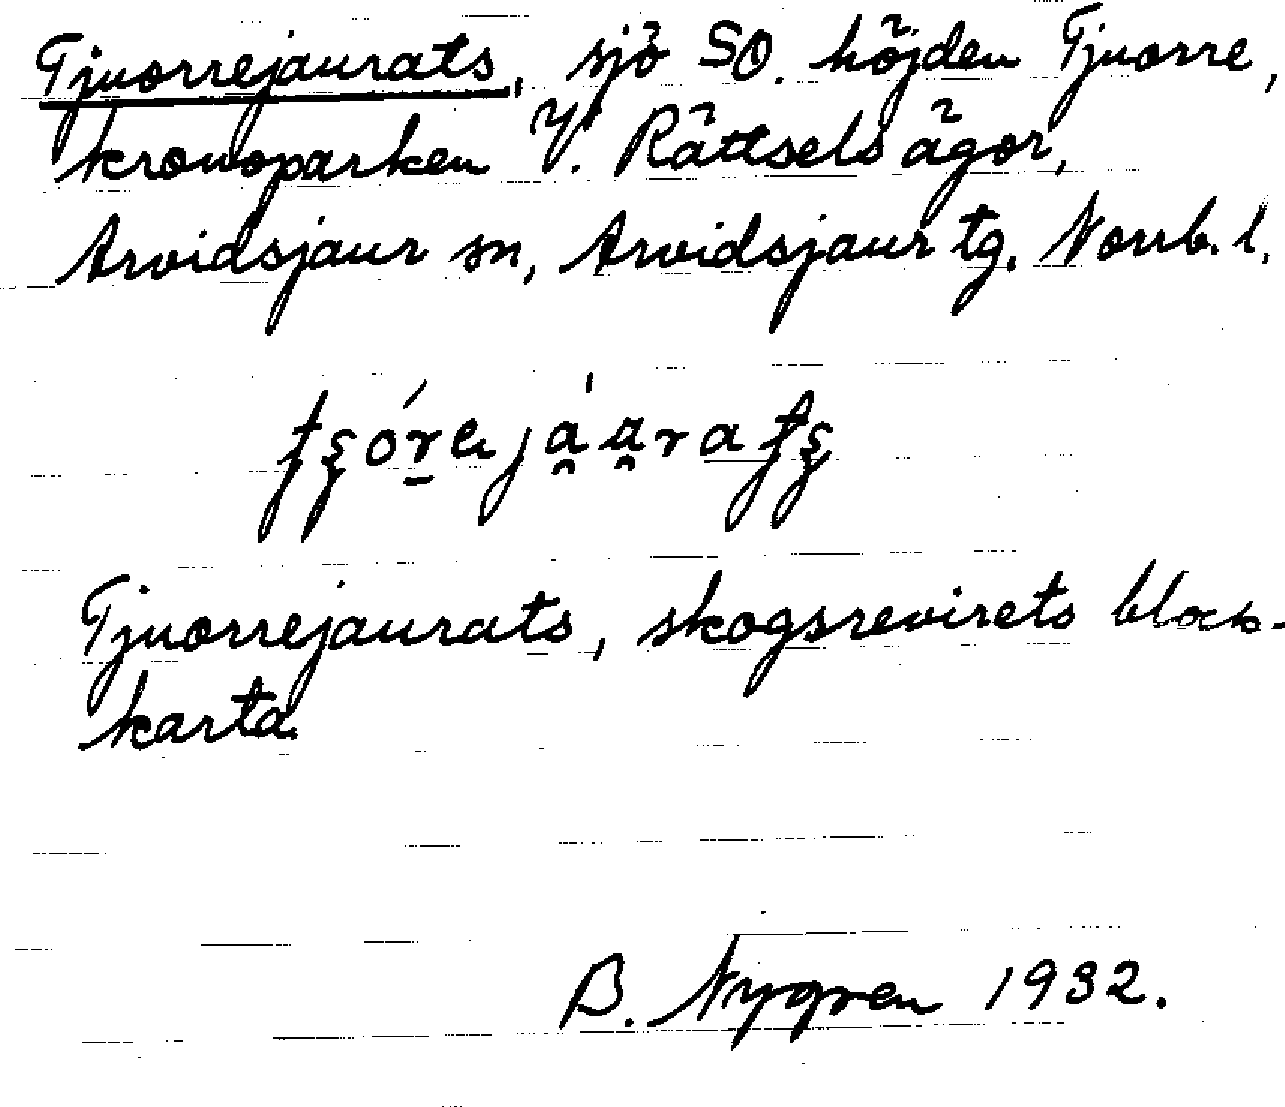 Tjuorrejaurats, sjö SO. höjden Tjuorre,
kronoparken V. Rättsels ägor,
Arvidsjaur sn, Arvidsjaur tg. Norrb. l.
tşór̠ejá̯a̯ratş
Tjuorrejaurats, skogsrevirets block-
karta.
B. Nygren 1932.